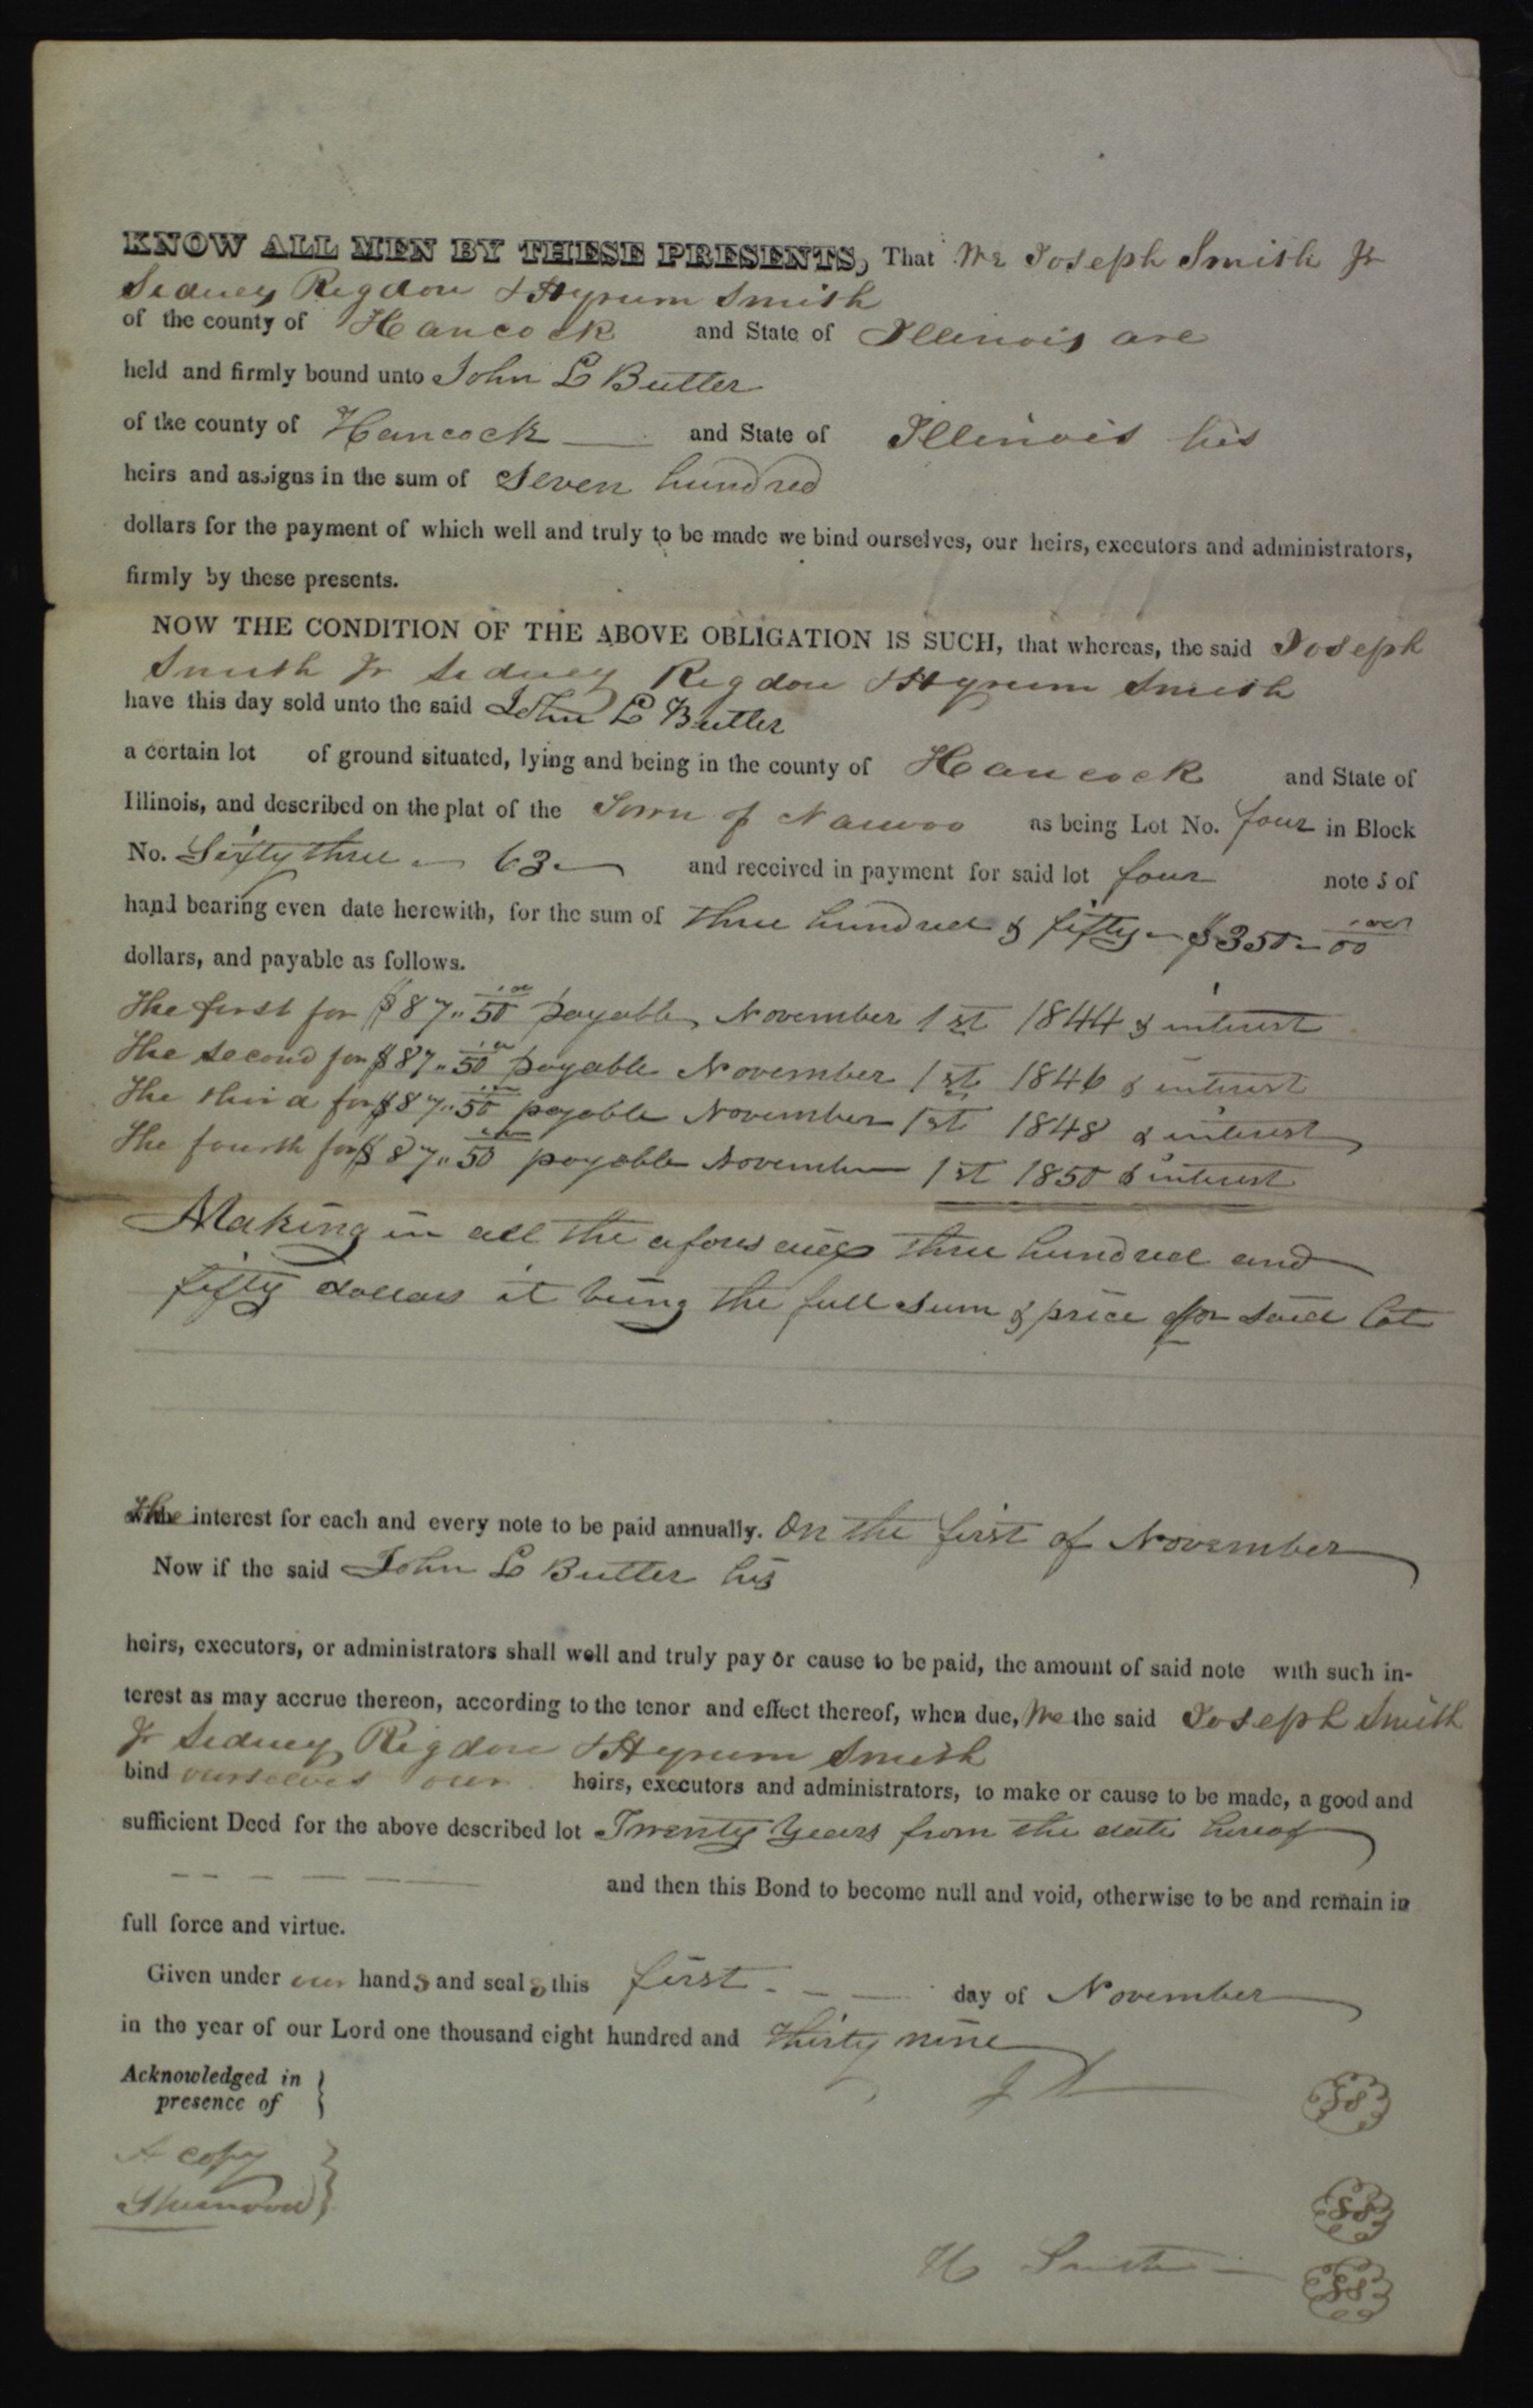 KNOW ALL MEN BY THESE PRESENTS, That We Joseph Smith Jr
Sidney Rigdon & Hyrum Smith
of the county of Hancock and State of Illinois are
held and firmly bound unto John L Butler
of the county of Hancock — and State of Illinois his
heirs and assigns in the sum of Seven hundred
dollars for the payment of which well and truly to be made we bind ourselves, our heirs, executors and administrators,
firmly by these presents.
NOW THE CONDITION OF THE ABOVE OBLIGATION IS SUCH, that whereas, the said Joseph
Smith Jr Sidney Rigdon & Hyrum Smith
have this day sold unto the said John L Butler
a certain lot of ground situated, lying and being in the county of Hancock and State of
Illinois, and described on the plat of the Town of Nauvoo as being Lot No. four in Block
No. Sixty three — 63 — and received in payment for said lot four note s of
hand bearing even date herewith, for the sum of three hundred & fifty — $350 — 00/100
dollars, and payable as follows.
The first for $87.. 50/100 payable November 1st 1844 & interest
The second for $87.. 50/100 payable November 1st 1846 & interest
The third for $87.. 50/100 payable November 1st 1848 & interest
The fourth for $87.. 50/100 payable November 1st 1850 & interest
Making in all the aforesaid three hundred and
fifty dollars it being the full sum & price for said lot
The interest for each and every note to be paid annually. On the first of November
Now if the said John L Butler his
heirs, executors, or administrators shall well and truly pay or cause to be paid, the amount of said note with such in-
terest as may accrue thereon, according to the tenor and effect thereof, when due, We the said Joseph Smith
Jr Sidney Rigdon & Hyrum Smith
bind ourselves our heirs, executors and administrators, to make or cause to be made, a good and
sufficient Deed for the above described lot Twenty Years from the date hereof
and then this Bond to become null and void, otherwise to be and remain in
full force and virtue.
Given under our hands and seals this first - - — day of November
in the year of our Lord one thousand eight hundred and thirty nine
Acknowledged in }
presence of }
A copy }
Sherwood }
H Smith